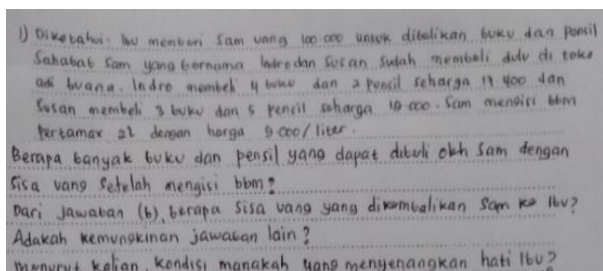 1) Diketahui: Ibu memberi Sam uang 100.000 untuk dibelikan buku dan Pensil
Sahabat Sam yang bernama Indro dan Susan sudah membeli dulu di toko
adi buana. Indro membeli 4 buku dan 2 pensil seharga 19.400 dan
Susan membeli 3 buku dan 5 pencil seharga 18.000. Sam mengisi bbm
Pertamax 2l dengan harga 9.000/liter.
Berapa banyak buku dan pensil yang dapat dibeli oleh Sam dengan
Sisa uang Setelah mengisi bbm?
Dari jawaban (b), berapa Sisa uang yang dikembalikan Sam ke Ibu?
Adakah kemungkinan jawaban lain?
Menurut kalian, kondisi manakah yang menyenangkan hati Ibu?